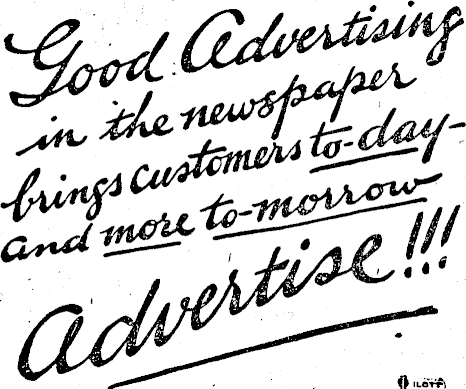 Good Advertising
in the newspaper
brings customers to-day-
and more to-morrow
Advertise!!!
ILOTT